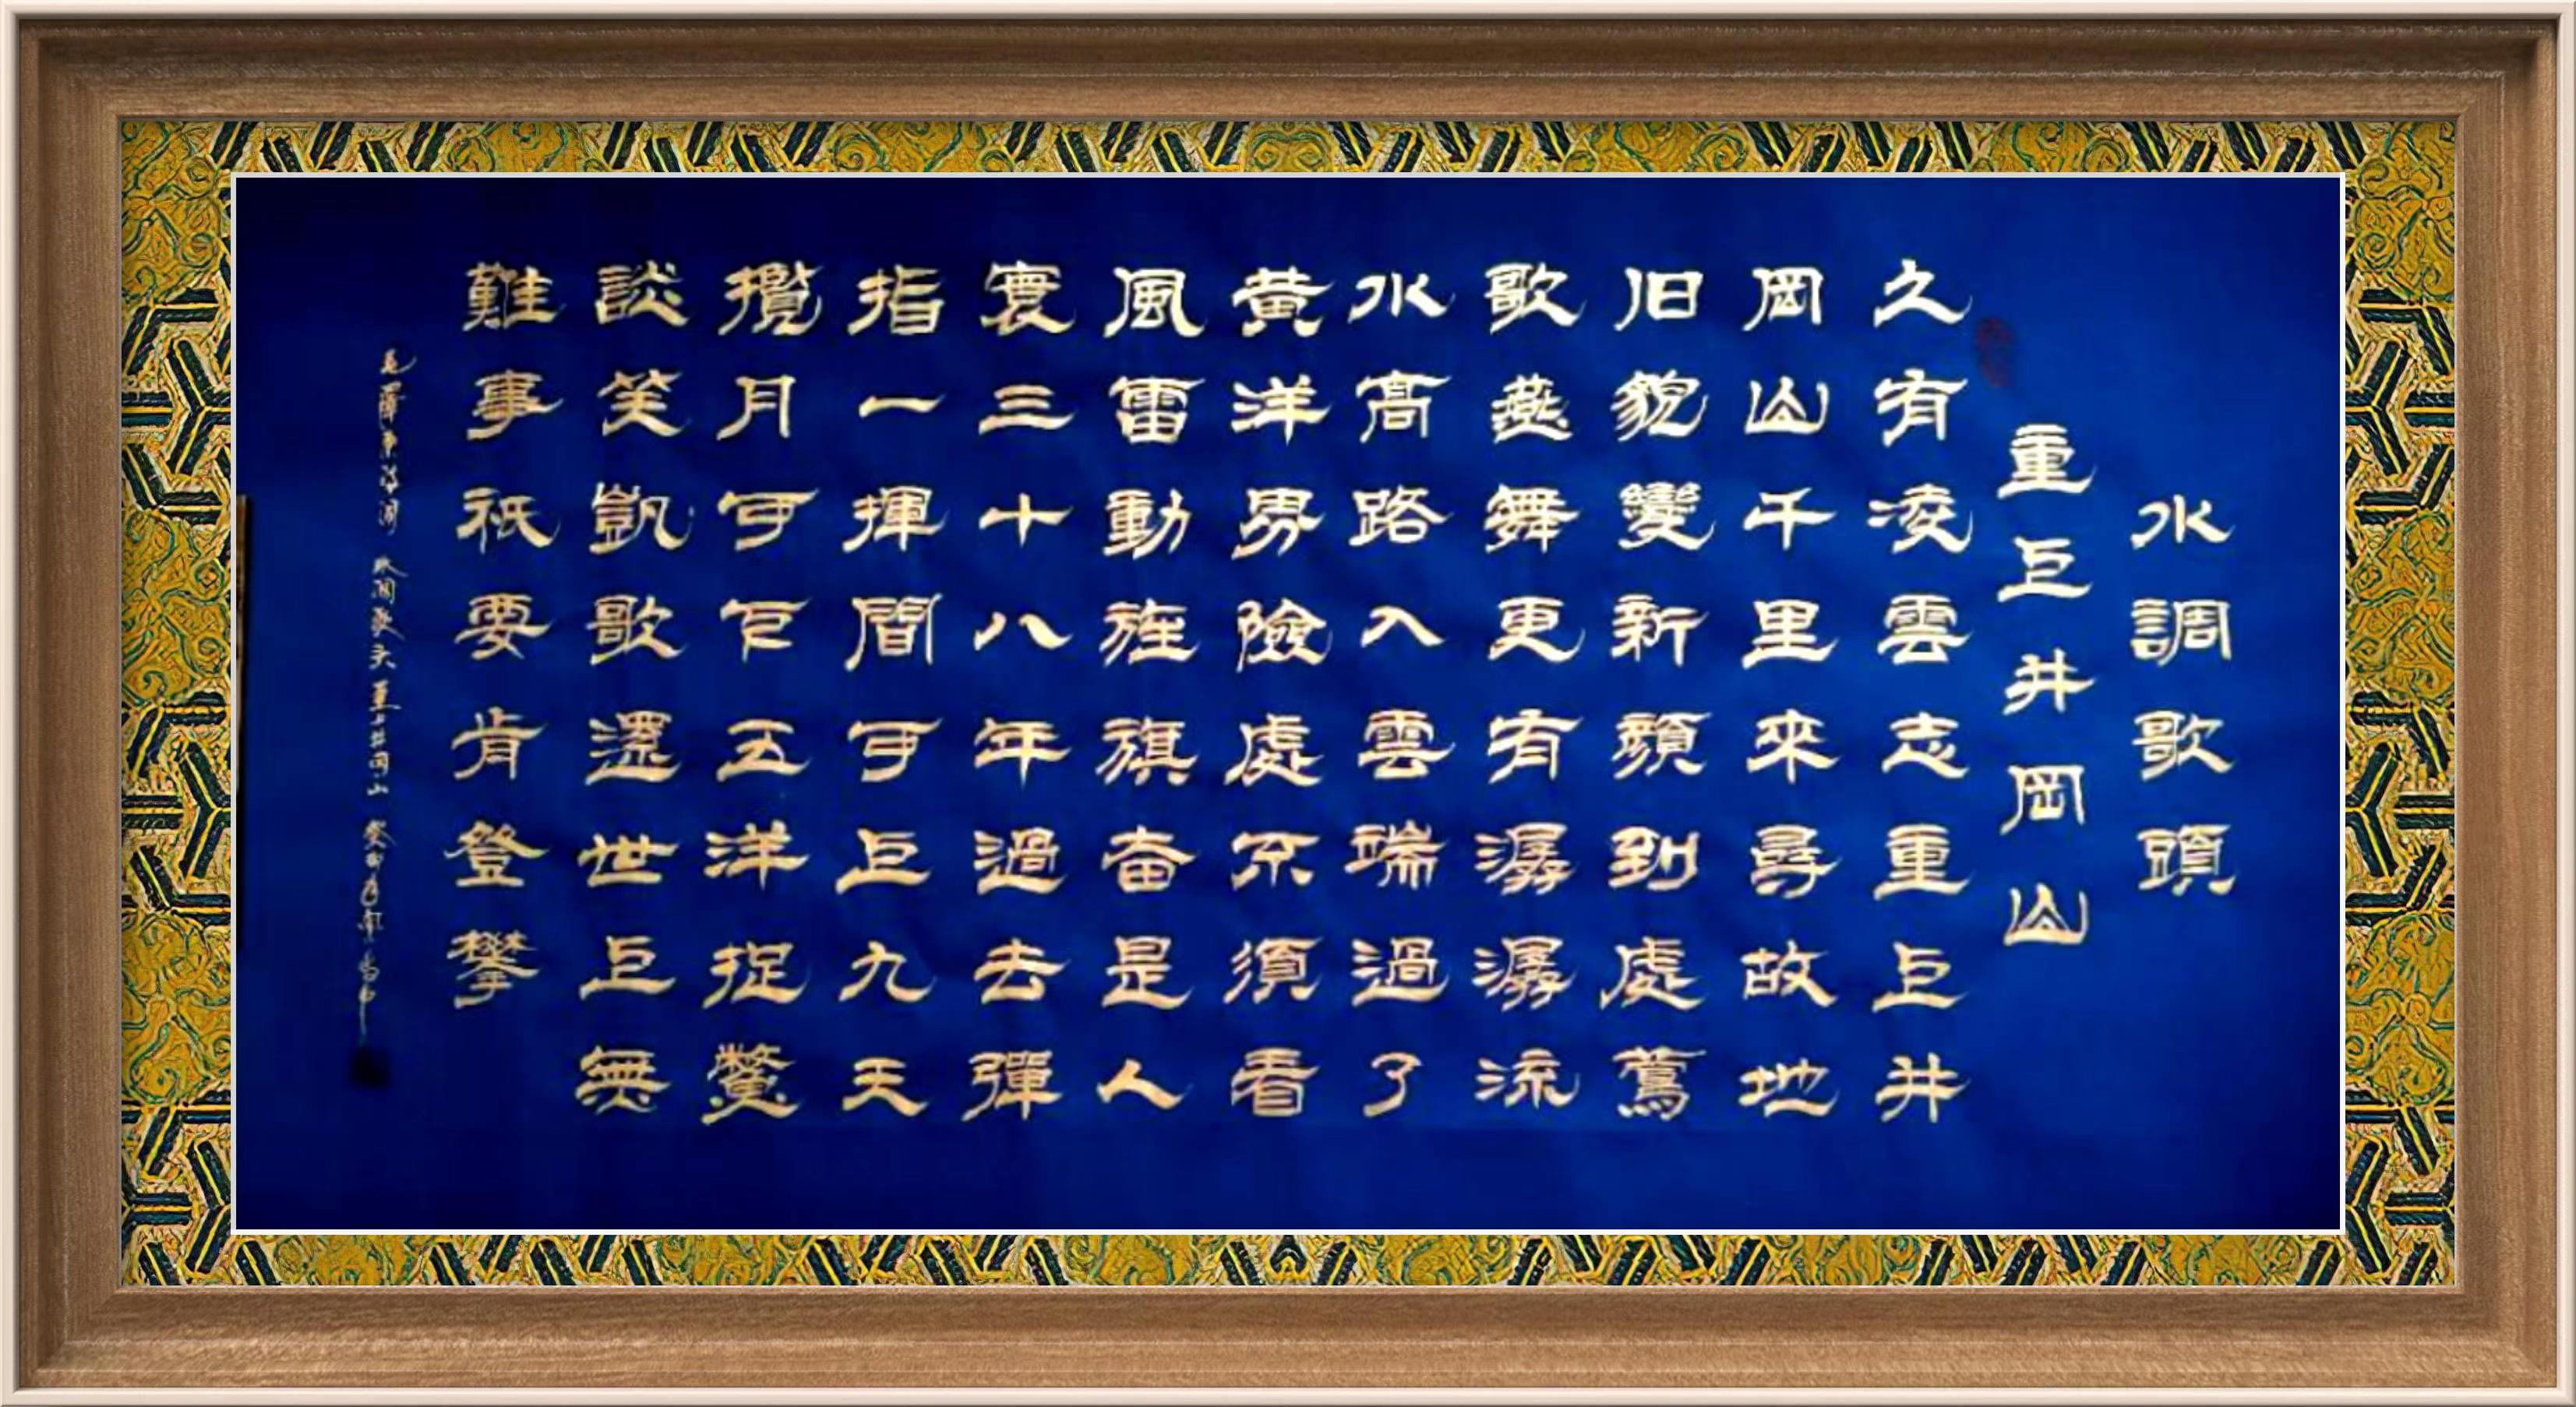 水調歌頭
重上井岡山
久有凌雲志重上井
岡山千里來尋故地
旧貌變新顏到處鶯
歌燕舞更有潺潺流
水髙路入雲端過了
黄洋界險處不須看
風雷動旌旗奋是人
寰三十八年過去彈
指一揮間可上九天
攬月可下五洋捉鱉
談笑凱歌還世上無
難事祇要肯登攀
毛澤東詩詞 水調歌头 重上井岡山 癸卯年